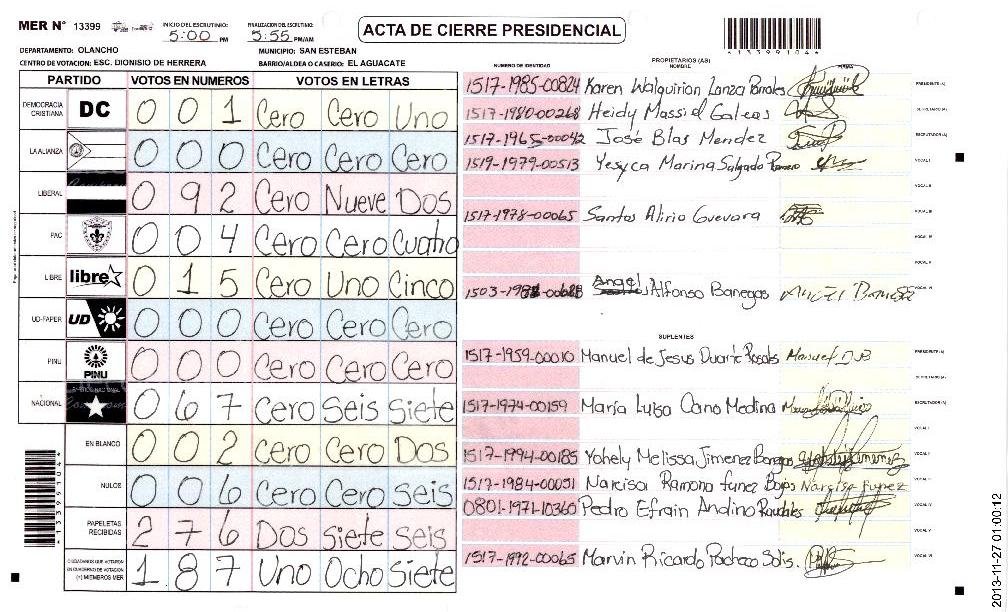 MER N° 13399
INICIO DEL ESCRUTINIO: 5:00 PM
FINALIZACION DEL ESCRUTINIO: 5:55 PM/AM
ACTA DE CIERRE PRESIDENCIAL
*1339910 4*
DEPARTAMENTO: OLANCHO
MUNICIPIO: SAN ESTEBAN
CENTRO DE VOTACION: ESC. DIONISIO DE HERRERA
BARRIO/ALDEA O CASERIO: EL AGUACATE
PARTIDO VOTOS EN NUMEROS VOTOS EN LETRAS
DEMOCRACIA CRISTIANA DC 0 0 1 Cero Cero Uno
LA ALIANZA 0 0 0 Cero Cero Cero
LIBERAL 0 9 2 Cero Nueve Dos
PAC 0 0 4 Cero Cero Cuatro
LIBRE libre 0 1 5 Cero Uno Cinco
UD-FAPER UD 0 0 0 Cero Cero Cero
PINU PINU 0 0 0 Cero Cero Cero
NACIONAL 0 6 7 Cero Seis Siete
EN BLANCO 0 0 2 Cero Cero Dos
NULOS 0 0 6 Cero Cero Seis
PAPELETAS RECIBIDAS 2 7 6 Dos Siete Seis
CIUDADANOS QUE VOTARON EN CUADERNO DE VOTACION (+) MIEMBROS MER 1 8 7 Uno Ocho Siete
NUMERO DE IDENTIDAD PROPIETARIOS (AS) NOMBRE FIRMA
1517-1985-00824 Karen Walquiria Lanza PRESIDENTE (A)
1517-1980-00268 Heidy Massiel Galeas SECRETARIO (A)
1517-1965-00042 José Blas Mendez ESCRUTADOR (A)
1519-1979-00513 Yesyca Marina Salgado VOCAL I
VOCAL II
1517-1978-00065 Santos Alirio Guevara VOCAL III
VOCAL IV
VOCAL V
Angel Alfonso Banegas VOCAL VI
SUPLENTES
1517-1959-00010 Manuel de Jesus Duarte Rosales Manuel PRESIDENTE (A)
SECRETARIO (A)
1517-1974-00159 María Luisa Cano Medina ESCRUTADOR (A)
VOCAL I
1517-1994-00185 Yohely Melissa Jimenez Banegas VOCAL II
1517-1984-00051 Narcisa Ramona funez Narcisa funez VOCAL III
0801-1971-10360 Pedro Efrain Andino VOCAL IV
VOCAL V
1517-1992-00065 Marvin Ricardo Pacheco Solis. VOCAL VI
2013-11-27 01:00:12